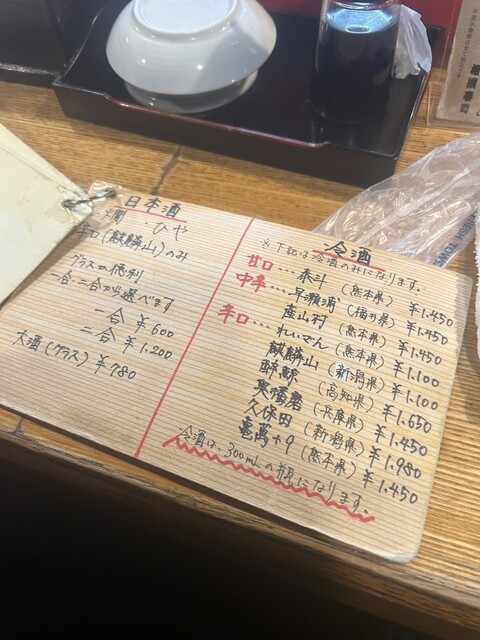 日本酒
燗 ひや
辛口(麒麟山)のみ
グラスor徳利
一合、二合から選べます
一合 ¥600
二合 ¥1.200
大酒(グラス)¥780
冷酒
※下記は冷酒のみになります。
甘口… 泰斗 (熊本県) ¥1.450
中辛… 早瀬浦 (福井県) ¥1.450
産山村 (熊本県) ¥1.450
辛口… れいざん (熊本県) ¥1.100
麒麟山 (新潟県) ¥1.100
酔鯨 (高知県) ¥1.650
奥播磨 (兵庫県) ¥1.450
久保田 (新潟県) ¥1.980
亀萬+9 (熊本県) ¥1.450
冷酒は、300mLの瓶になります。